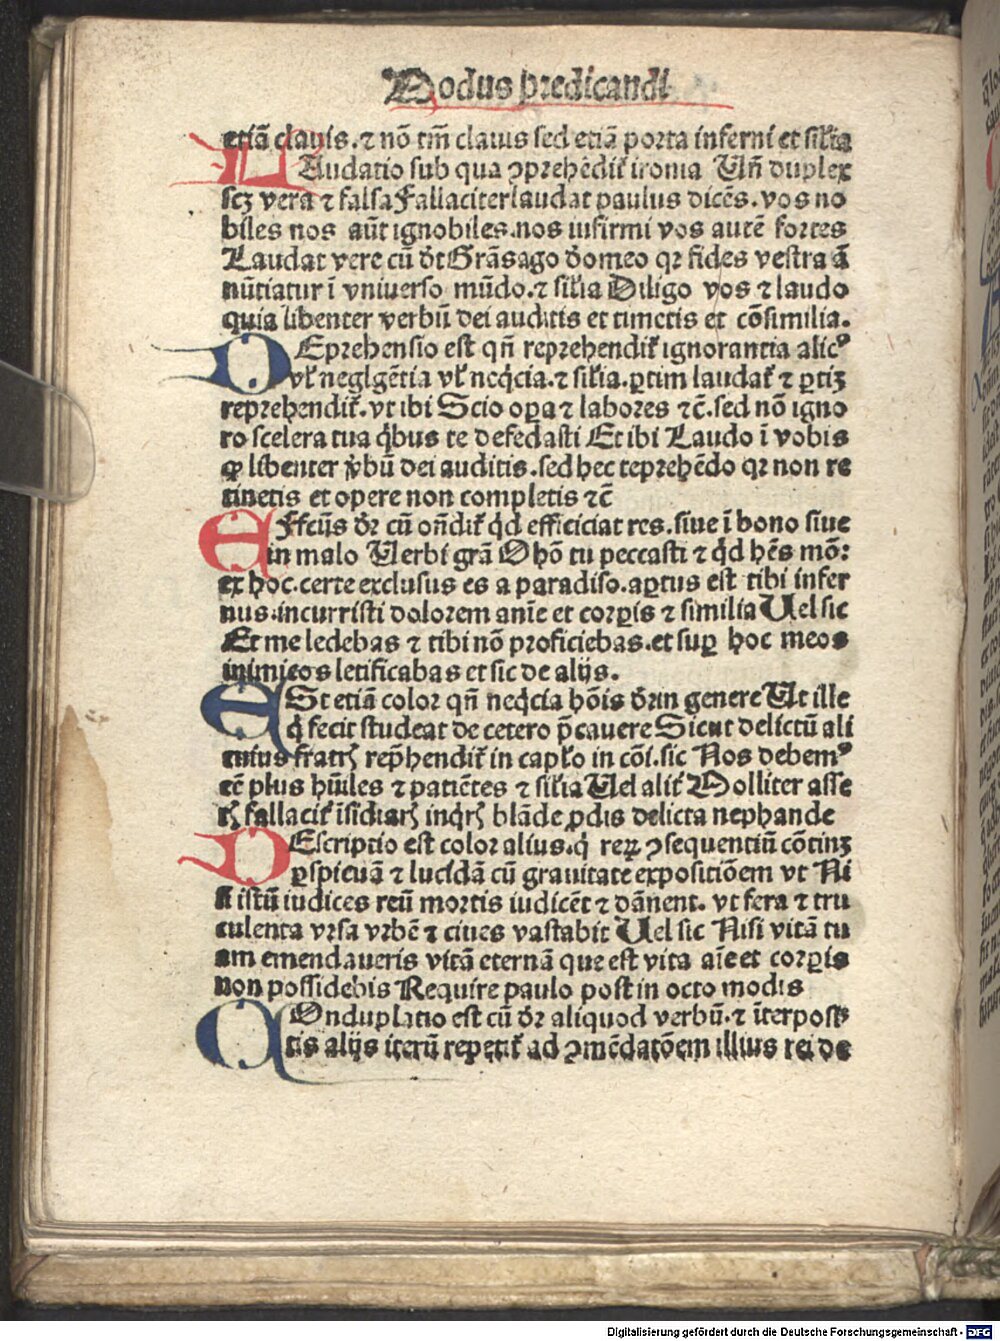 Modus predicandi
etiā clauis. ⁊ nō tm̄ clauus sed etiā porta inferni et sil̄ia
LAudatio sub qua ↄprehēdit᷑ ironia Uñ duplex
scꝫ vera ⁊ falsa Fallaciter laudat paulus dicēs. vos no
biles nos aūt ignobiles. nos infirmi vos autē fortes
Laudat vere cū dr̄
quia libenter verbū dei auditis et timetis et cōsimilia.
nūtiatur ī vniuerso mūdo. ⁊ sil̄ia Diligo vos ⁊ laudo
Eprehensio est qñ reprehendit᷑ ignorantia alicꝰ
vl̄ neglgētia vl̄ neq̄cia. ⁊ sil̄ia. ꝑtim laudat᷑ ⁊ ꝑtiꝫ
reprehendit᷑. vt ibi Scio oꝑa ⁊ labores ⁊c̄. sed nō igno
ro scelera tua q̄bus te defedasti Et ibi Laudo ī vobis
ꝙ libenter v̄bū dei auditis. sed hec reprehēdo qꝛ non re
tinetis et opere non completis ⁊c̄
EFfctūs dr̄ cū oñdit᷑ qd̄ efficiciat res. siue ī bono siue
in malo Uerbi grā O hō tu peccasti ⁊ qd̄ hēs mō:
ex hoc. certe exclusus es a paradiso. aꝑtus est tibi infer
nus. incurristi dolorem anīe et corꝑis ⁊ similia Uel sic
Et me ledebas ⁊ tibi nō proficiebas. et suꝑ hoc meos
inimicos letificabas et sic de alijs.
ESt etiā color qñ neq̄cia hōis dr̄ in genere Ut ille
q̄ fecit studeat de cetero p̄cauere Sicut delictū ali
cuius fratrꝭ rep̄hendit᷑ in capl̄o in cōi. sic Nos debemꝰ
eē plus hūiles ⁊ patiētes ⁊ sil̄ia Uel alit᷑ Molliter asse
rꝭ fallacit᷑ īsidiarꝭ inqrꝭ blāde ꝓdis delicta nephande
DEscriptio est color alius. q̄ reꝝ ↄsequentiū cōtinꝫ
ꝑspicuā ⁊ lucidā cū grauitate expositiōem vt Ni
si istū iudices reū mortis iudicēt ⁊ dānent. vt fera ⁊ tru
culenta vrsa vrbē ⁊ ciues vastabit Uel sic Nisi vitā tu
am emendaueris vitā eternā que est vita aīe et corꝑis
non possidebis Require paulo post in octo modis
COnduplatio est cū dr̄ aliquod verbū. ⁊ īterposi
tis alijs iterū repetit᷑ ad ↄmēdatōem illius rei de